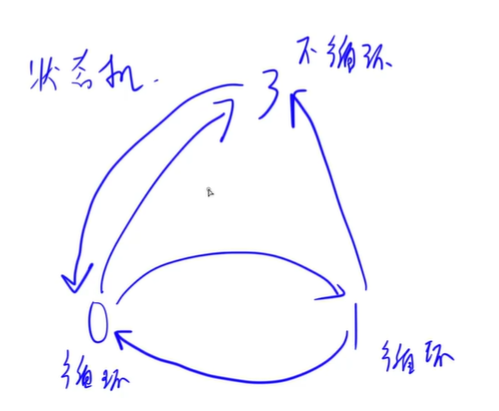 状态机.
3 不循环
0 1
循环 循环